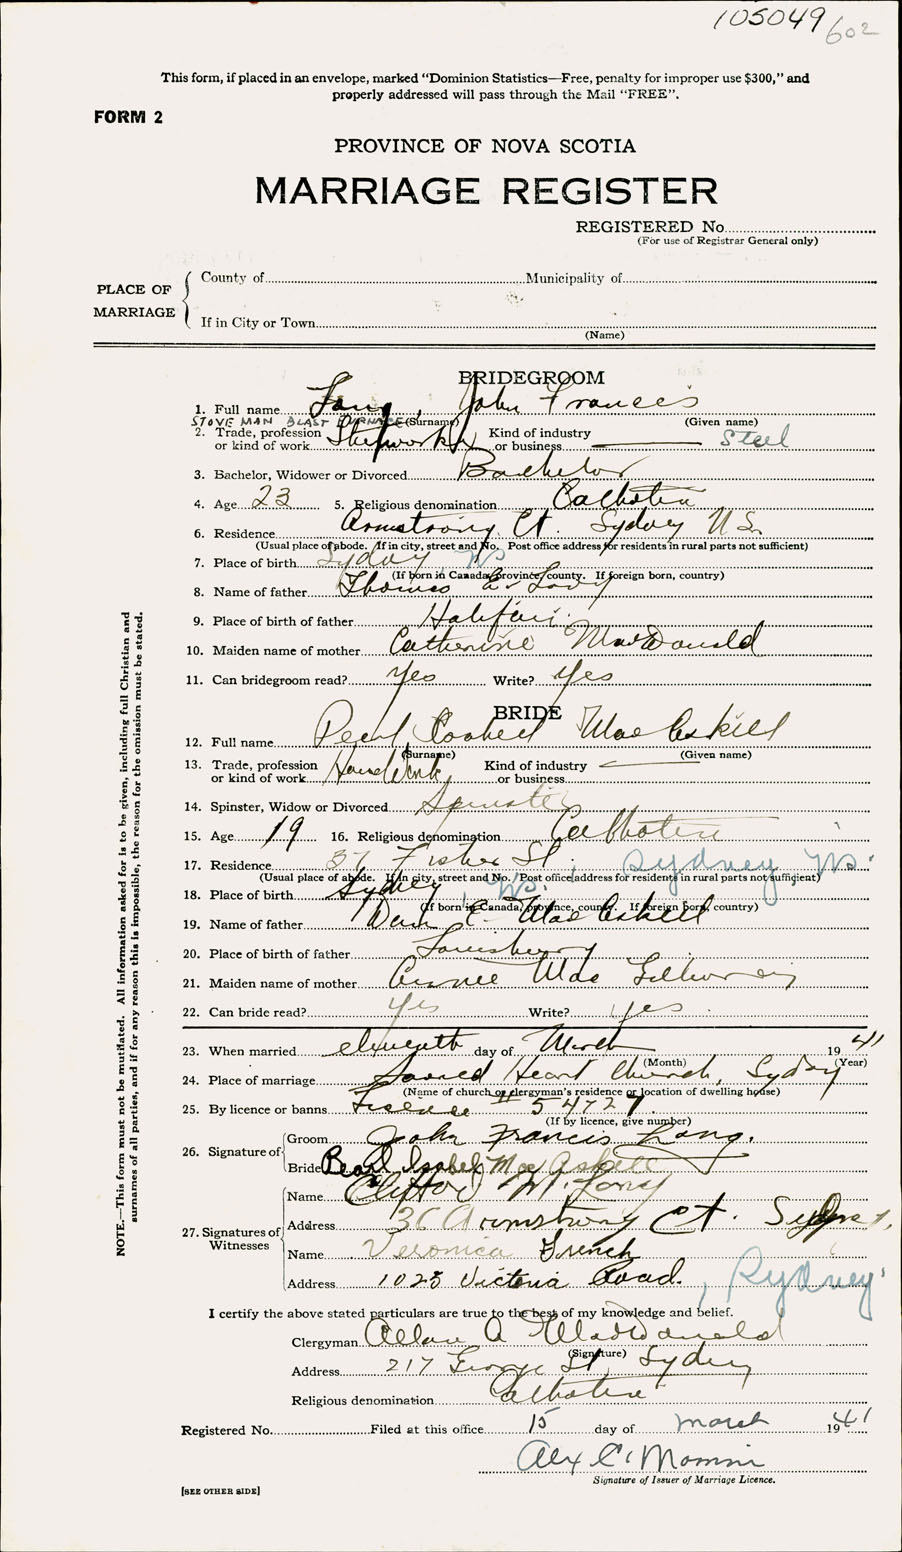 105049 602
This form, if placed in an envelope, marked “Dominion Statistics—Free, penalty for improper use $300,” and
properly addressed will pass through the Mail “FREE”.
FORM 2
PROVINCE OF NOVA SCOTIA
MARRIAGE REGISTER
REGISTERED No.
(For use of Registrar General only)
PLACE OF MARRIAGE
County of Municipality of
If in City or Town
(Name)
BRIDEGROOM
1. Full name Long, John Francis
STOVE MAN BLAST FURNACE (Surname) (Given name)
2. Trade, profession or kind of work Steelworker Kind of industry or business Steel
3. Bachelor, Widower or Divorced Bachelor
4. Age 23 5. Religious denomination Catholic
6. Residence Armstrong Ct. Sydney N.S.
(Usual place of abode. If in city, street and No. Post office address for residents in rural parts not sufficient)
7. Place of birth Sydney NS
(If born in Canada, province, county. If foreign born, country)
8. Name of father Thomas E. Long
9. Place of birth of father Halifax.
10. Maiden name of mother Catherine MacDonald
11. Can bridegroom read? Yes Write? Yes
BRIDE
12. Full name Pearl MacAskill
(Surname) (Given name)
13. Trade, profession or kind of work Housework Kind of industry or business
14. Spinster, Widow or Divorced Spinster
15. Age 19 16. Religious denomination Catholic
17. Residence 37 Fisher St. Sydney NS.
(Usual place of abode. If in city, street and No. Post office address for residents in rural parts not sufficient)
18. Place of birth Sydney, NS.
(If born in Canada, province, county. If foreign born, country)
19. Name of father Dan E. MacAskill
20. Place of birth of father Louisburg
21. Maiden name of mother Annie Mac
22. Can bride read? Yes Write? Yes
23. When married eleventh day of March 1941
(Month) (Year)
24. Place of marriage Sacred Heart Church, Sydney
(Name of church or clergyman's residence or location of dwelling house)
25. By licence or banns License # 54727
(If by licence, give number)
26. Signature of Groom John Francis Long.
Bride Pearl Isabel MacAskill
27. Signatures of Witnesses Name Clifton M. Long
Address 36 Armstrong Ct. Sydney,
Name Veronica French
Address 1025 Victoria Road. , Sydney
I certify the above stated particulars are true to the best of my knowledge and belief.
Clergyman Allan A MacDonald
(Signature)
Address 217 George St, Sydney
Religious denomination Catholic
Registered No. Filed at this office 15 day of March 1941
Alex C.
Signature of Issuer of Marriage Licence.
[SEE OTHER SIDE]
NOTE.—This form must not be mutilated. All information asked for is to be given, including full Christian and
surnames of all parties, and if for any reason this is impossible, the reason for the omission must be stated.